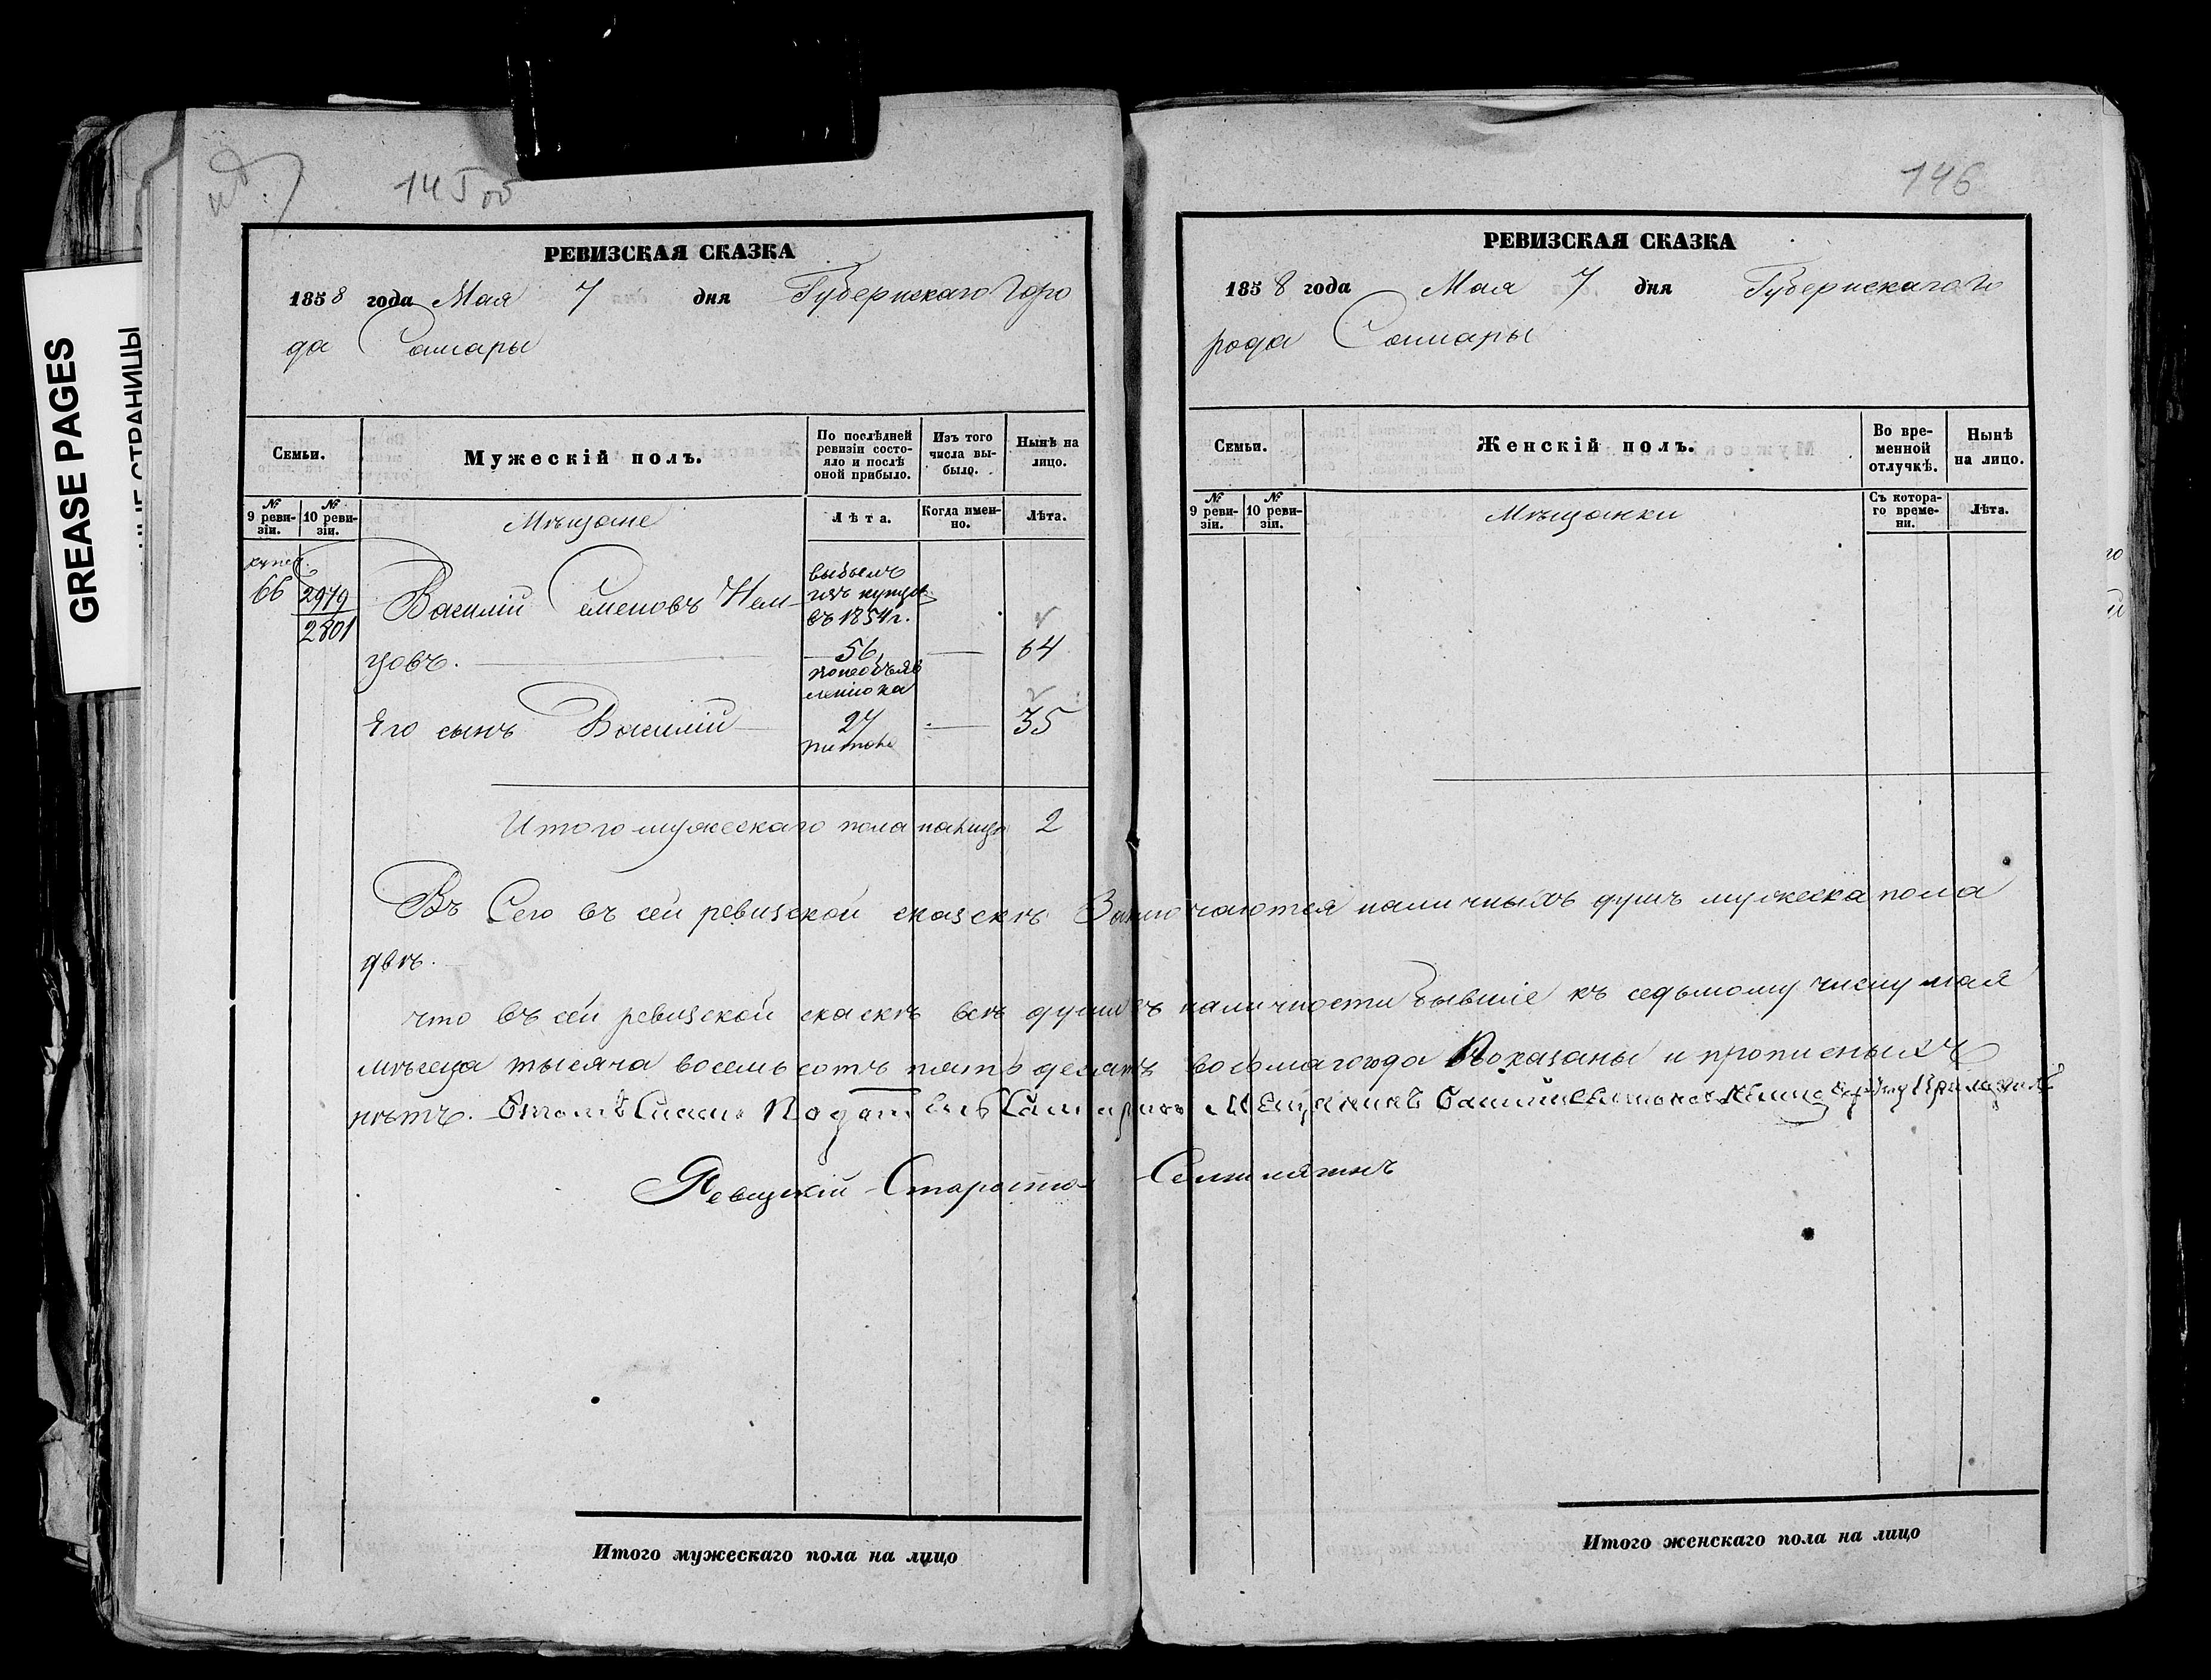 GREASE PAGES
ЫЕ СТРАНИЦЫ
145 об
РЕВИЗСКАЯ СКАЗКА
1858 года Мая 7 дня Губернскаго Горо
да Самары
Семьи.
Мужескій полъ.
По послѣдней ревизіи состо-
яло и послѣ
оной прибыло.
Изъ того
числа вы-
было.
Нынѣ на
лицо.
№
9 реви-
зіи.
№
10 реви-
зіи.
Мѣщане
Лѣта.
Когда имен-
но.
Лѣта.
купеч.
66 2979
2801
Василій Семеновъ Нем
выбылъ
изъ купцов
въ 1854 г.
цовъ. 56 64
Его сынъ Василій 27 35
Итого мужескаго пола на лицо 2
Въ Сего въ сей ревизской сказскѣ Заключаются наличныхъ душъ мужеска пола
двѣ.
что въ сей ревизской скаскѣ всѣ души въ наличности бывшіе къ седьмому числу мая
мѣсеца тысяча восемь сотъ пять десятъ восьмаго года Показаны и прописныхъ
нѣтъ.
Ревизскій Староста
146
РЕВИЗСКАЯ СКАЗКА
1858 года Мая 7 дня Губернскаго Го
рода Самары
Семьи.
Женскій полъ.
Во вре-
менной
отлучкѣ.
Нынѣ
на лицо.
№
9 реви-
зіи.
№
10 реви-
зіи.
Мѣщанки
Съ котора-
го време-
ни.
Лѣта.
Итого мужескаго пола на лицо
Итого женскаго пола на лицо